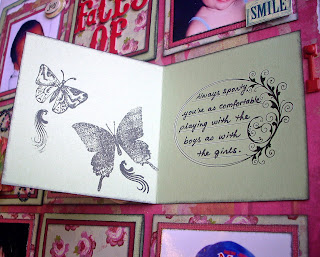 FALLS
OF
SMILE
Always sporty,
you're as comfortable
playing with the
boys as with
the girls.